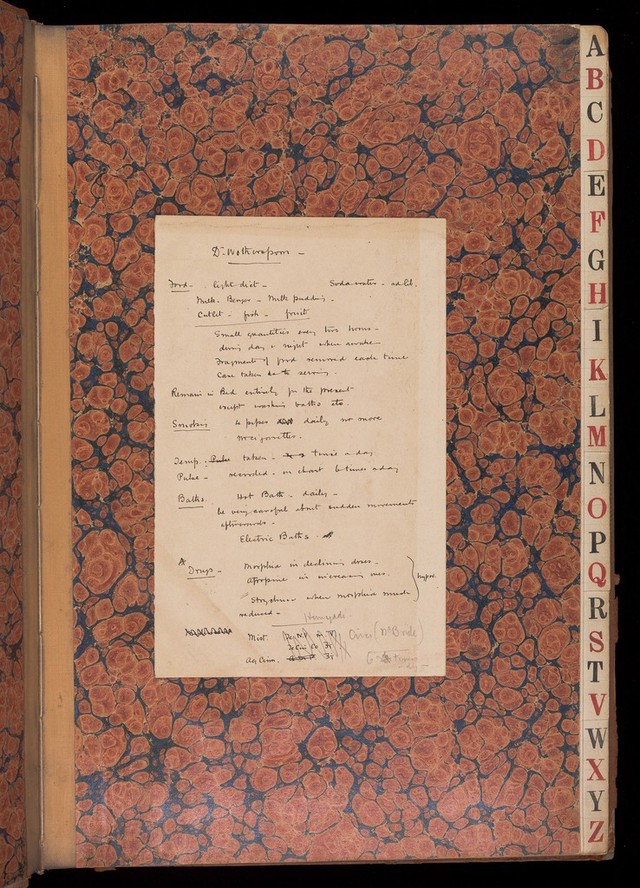 Dr. Wotherspoon -
Food. light diet - Soda water - ad lib.
Milk. Benger - Milk pudding -
Cutlet - fish - fruit
Small quantities every two hours -
during day & night when awake -
Fragments of food removed each time
Care taken in serving.
Remain in Bed entirely for the present
except washing baths etc.
Smokes 4 pipes daily no more
no cigarettes.
Temp. Pulse taken - twice a day.
Pulse - recorded - on chart 6 times a day
Baths. Hot Bath - daily -
be very careful about sudden movements
afterwards -
Electric Baths.
Drugs - Morphia in declining doses -
Atropine in increasing ones.
Strychnine when morphia much
reduced -
Mist.
(McBride)
A
B
C
D
E
F
G
H
I
K
L
M
N
O
P
Q
R
S
T
V
W
X
Y
Z